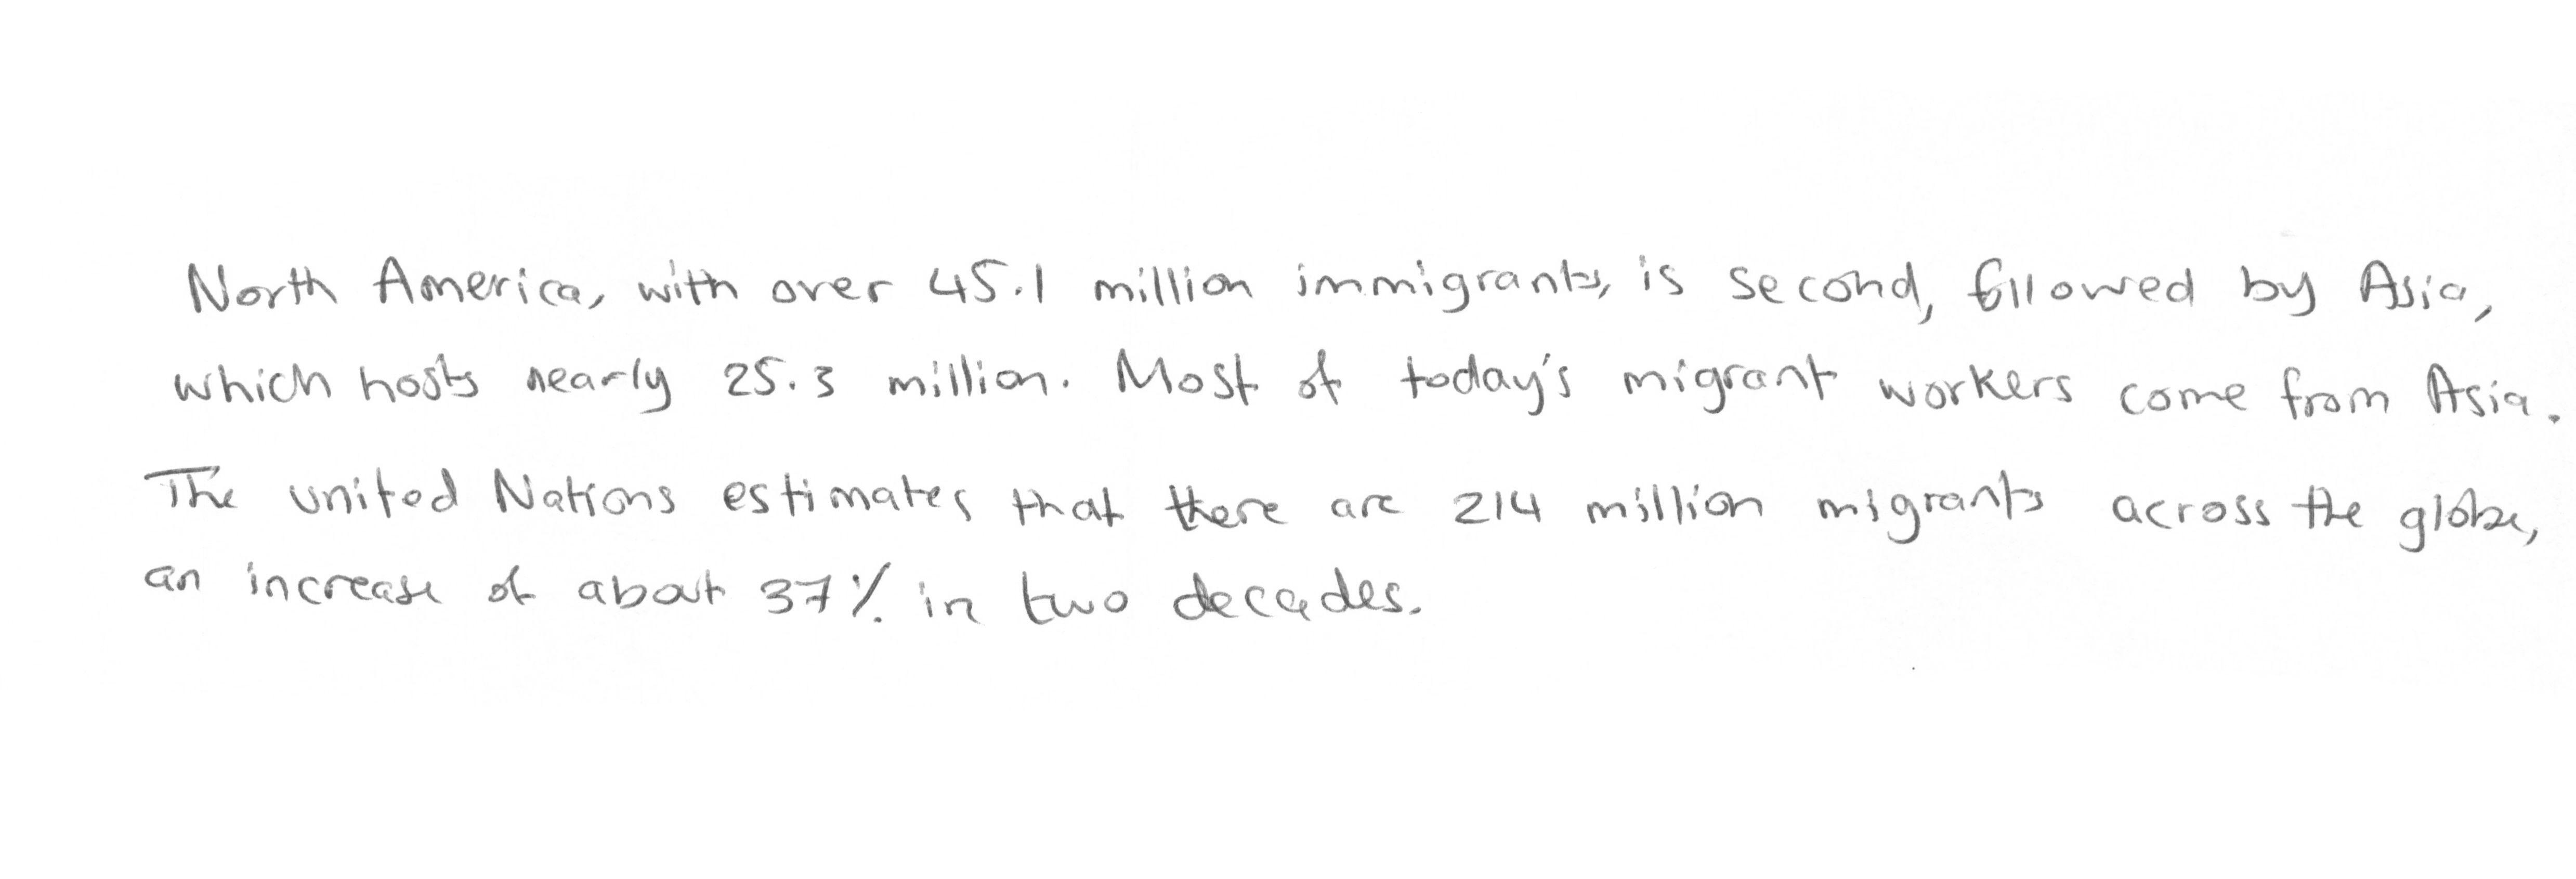 North America, with over 45.1 million immigrants, is second, followed by Asia,
which hosts nearly 25.3 million. Most of today's migrant workers come from Asia.
The united Nations estimates that there are 214 million migrants across the globe,
an increase of about 37% in two decades.